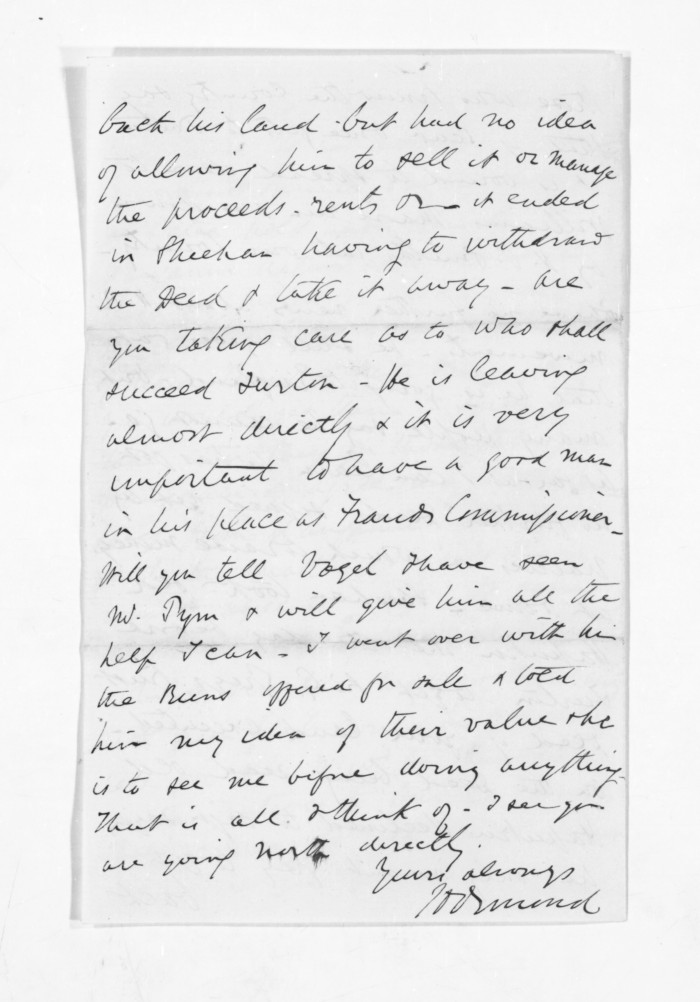 back his land - but had no idea
of allowing him to sell it or manage
the proceeds - rents or - it ended
in Sheehan having to withdraw
the Deed & take it away - are
you taking care as to who shall
succeed Turton - He is leaving
almost directly & it is very
important to have a good man
in his place as Frauds Commissioner -
Will you tell Vogel I have seen
Mr. Pym & will give him all the
help I can - I went over with him
the Runs offered for sale & told
him my idea of their value & he
is to see me before doing anything -
That is all I think of - I see you
are going North directly.
Yours always
JDOrmond